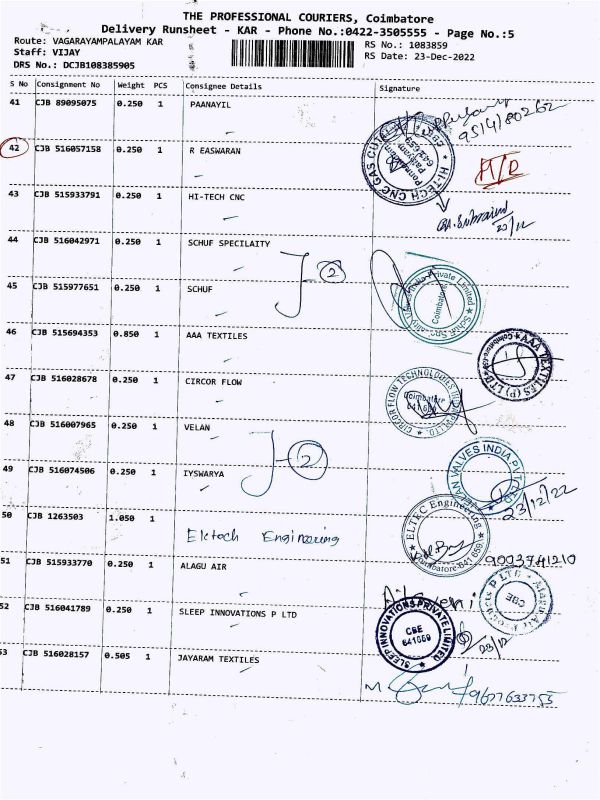 THE PROFESSIONAL COURIERS, Coimbatore
Delivery Runsheet - KAR - Phone No.:0422-3505555 - Page No.:5
Route: VAGARAYAMPALAYAM KAR
RS No.: 1083859
Staff: VIJAY
RS Date: 23-Dec-2022
DRS No.: DCJB108385905
S No Consignment No Weight PCS Consignee Details Signature
41 CJB 89095075 0.250 1 PAANAYIL
42 CJB 516057158 0.250 1 R EASWARAN
43 CJB 515933791 0.250 1 HI-TECH CNC
HI-TECH CNC GAS
44 CJB 516042971 0.250 1 SCHUF SPECILAITY
2
45 CJB 515977651 0.250 1 SCHUF
Coimbatore
46 CJB 515694353 0.850 1 AAA TEXTILES
AAA TEXTILES (P) LTD
47 CJB 516028678 0.250 1 CIRCOR FLOW
CIRCOR FLOW TECHNOLOGIES
Coimbatore
641 659
48 CJB 516007965 0.250 1 VELAN
VALVES INDIA PVT LTD
49 CJB 516074506 0.250 1 IYSWARYA
2
23/12/22
50 CJB 1263503 1.050 1 Elctech Engineering
ELTEC Engineering
Coimbatore-641 659
9003741210
51 CJB 515933770 0.250 1 ALAGU AIR
CBE
52 CJB 516041789 0.250 1 SLEEP INNOVATIONS P LTD
SLEEP INNOVATIONS PRIVATE LIMITED
CBE
641659
23/12
53 CJB 516028157 0.505 1 JAYARAM TEXTILES
9677633755